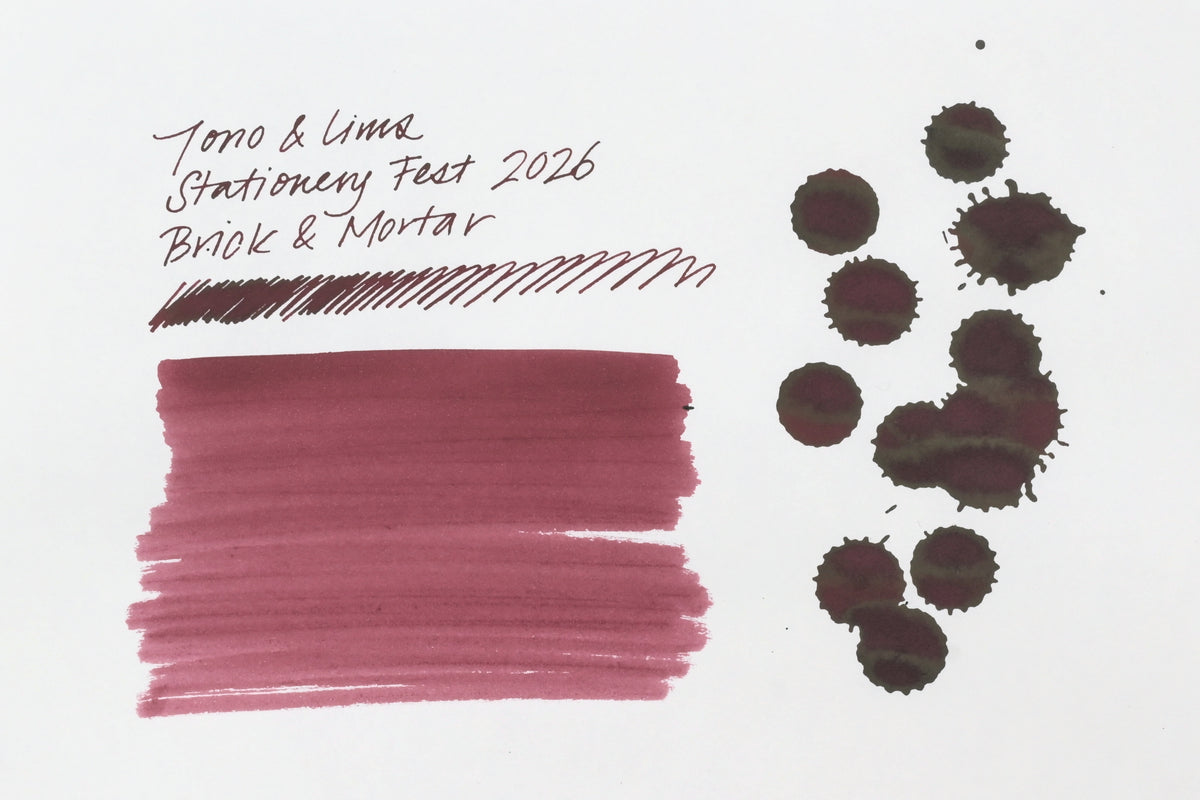 Tono & Lims
Stationery Fest 2026
Brick & Mortar